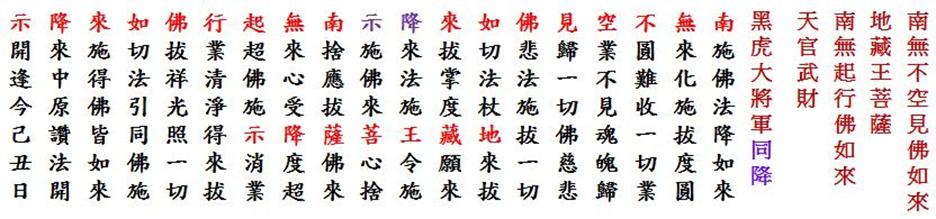 南無不空見佛如來
地藏王菩薩
南無起行佛如來
天官武財
黑虎大將軍同降
南施佛法降如來
無來化施拔度圓
不圓難收一切業
空業不見魂魄歸
見歸一切佛慈悲
佛悲法施拔一切
如切法杖地來拔
來拔掌度藏願來
降來法施王令施
示施佛來菩心捨
南捨應拔薩佛來
無來心受降度超
起超佛施示消業
行業清淨得來拔
佛拔祥光照一切
如切法引同佛施
來施得佛皆如來
降來中原讚法開
示開逢今己丑日